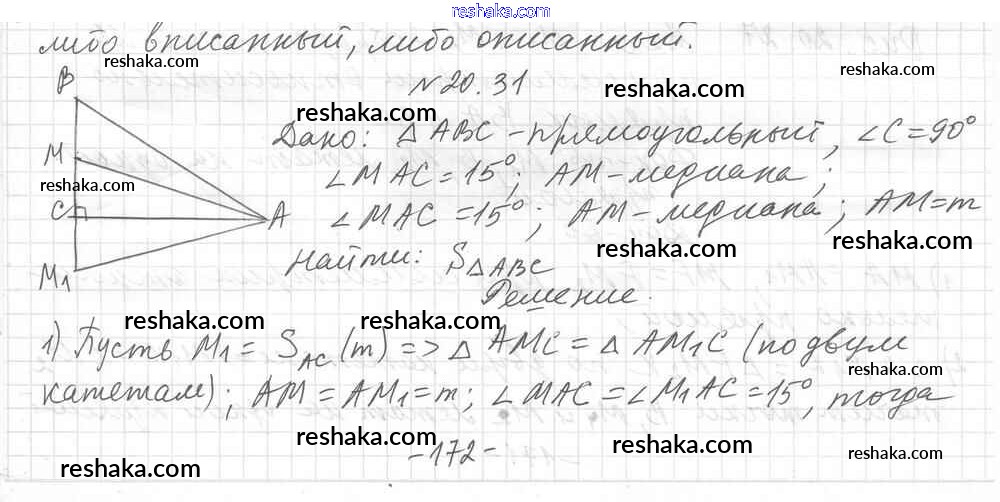 reshaka.com
либо вписанный, либо описанный.
reshaka.com
reshaka.com
№20.31
reshaka.com
reshaka.com
B
M
C
A
M₁
reshaka.com
Дано: △ABC - прямоугольный, ∠C=90°
∠MAC=15°; AM - медиана;
∠MAC=15°; AM - медиана; AM=m
reshaka.com
reshaka.com
reshaka.com
Найти: S△ABC
Решение.
reshaka.com
reshaka.com
1) Пусть M₁ = S_AC (m) => △AMC = △AM₁C (по двум
катетам); AM = AM₁ = m; ∠MAC = ∠M₁AC = 15°, тогда
reshaka.com
reshaka.com
-172-
reshaka.com
reshaka.com
reshaka.com